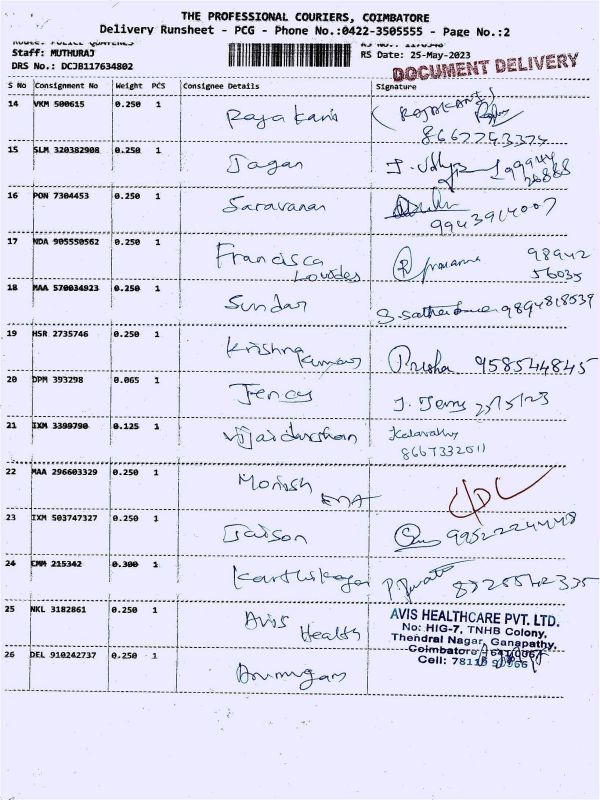 THE PROFESSIONAL COURIERS, COIMBATORE
Delivery Runsheet - PCG - Phone No.:0422-3505555 - Page No.:2
Staff: MUTHURAJ
RS Date: 25-May-2023
DRS No.: DCJB117634802
DOCUMENT DELIVERY
S No Consignment No Weight PCS Consignee Details Signature
14 VKM 500615 0.250 1 Raja Kani
15 SLM 320382908 0.250 1 Jagan
16 PON 7304453 0.250 1 Saravanan
9943914007
17 NDA 905550562 0.250 1 Francisca
Lourdes
98942
56035
18 MAA 570034923 0.250 1 Sundar 9894818539
19 HSR 2735746 0.250 1 Krishna
Kumar
Prisha 9585544845
20 DPM 393298 0.065 1 Jency J. Jency 25/5/23
21 IXM 3399790 0.125 1 Vijaidarshan
8667332011
22 MAA 296603329 0.250 1
23 IXM 503747327 0.250 1 Jaison
24 EMM 215342 0.300 1
25 NKL 3182861 0.250 1 Avis
Health
AVIS HEALTHCARE PVT. LTD.
No: HIG-7, TNHB Colony,
Thendral Nagar, Ganapathy,
Coimbatore - 641006
Cell:
26 DEL 910242737 0.250 1 Arumugam